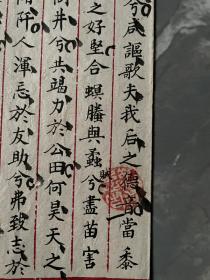 兮咸謳歌夫我后之德音當黍
之好堅合螟螣與蟊賊兮盡苗害
同井兮共竭力於公田何昊天之
陌阡人渾忘於友助兮弗致志於